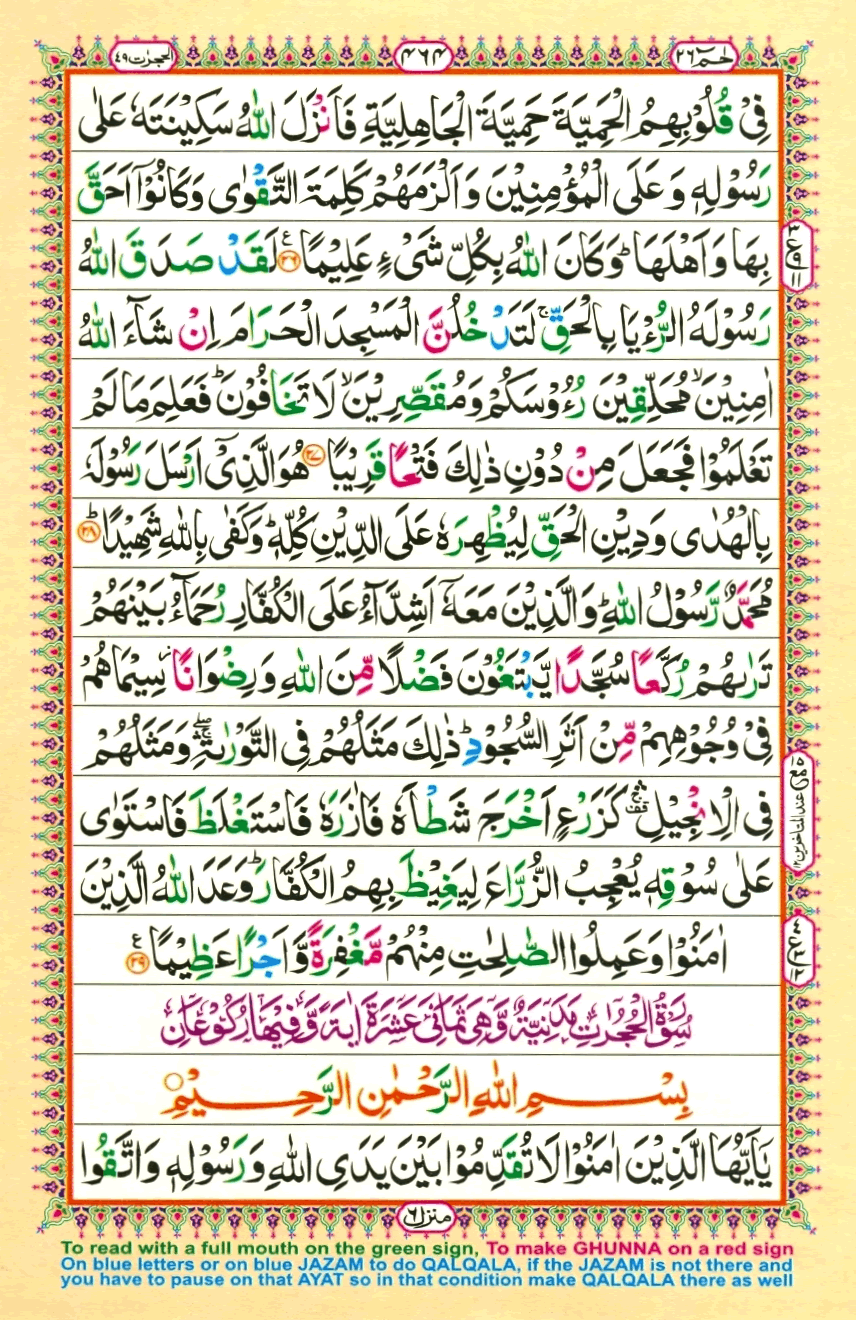 حٰمٓ ٢٦
٤٦٤
الحجرٰت ٤٩
فِيْ قُلُوْبِهِمُ الْحَمِيَّةَ حَمِيَّةَ الْجَاهِلِيَّةِ فَاَنْزَلَ اللّٰهُ سَكِيْنَتَهٗ عَلٰى
رَسُوْلِهٖ وَعَلَى الْمُؤْمِنِيْنَ وَاَلْزَمَهُمْ كَلِمَةَ التَّقْوٰى وَكَانُوْۤا اَحَقَّ
بِهَا وَاَهْلَهَا ؕ وَكَانَ اللّٰهُ بِكُلِّ شَيْءٍ عَلِيْمًا ۟ع ٢٦ لَقَدْ صَدَقَ اللّٰهُ
رَسُوْلَهُ الرُّءْيَا بِالْحَقِّ ۚ لَتَدْخُلُنَّ الْمَسْجِدَ الْحَرَامَ اِنْ شَآءَ اللّٰهُ
اٰمِنِيْنَ ۙ مُحَلِّقِيْنَ رُءُوْسَكُمْ وَمُقَصِّرِيْنَ ۙ لَا تَخَافُوْنَ ؕ فَعَلِمَ مَا لَمْ
تَعْلَمُوْا فَجَعَلَ مِنْ دُوْنِ ذٰلِكَ فَتْحًا قَرِيْبًا ٢٧ هُوَ الَّذِيْۤ اَرْسَلَ رَسُوْلَهٗ
بِالْهُدٰى وَدِيْنِ الْحَقِّ لِيُظْهِرَهٗ عَلَى الدِّيْنِ كُلِّهٖ ؕ وَكَفٰى بِاللّٰهِ شَهِيْدًا ؕ ٢٨
مُحَمَّدٌ رَّسُوْلُ اللّٰهِ ؕ وَالَّذِيْنَ مَعَهٗۤ اَشِدَّآءُ عَلَى الْكُفَّارِ رُحَمَآءُ بَيْنَهُمْ
تَرٰىهُمْ رُكَّعًا سُجَّدًا يَّبْتَغُوْنَ فَضْلًا مِّنَ اللّٰهِ وَرِضْوَانًا ؗ سِيْمَاهُمْ
فِيْ وُجُوْهِهِمْ مِّنْ اَثَرِ السُّجُوْدِ ؕ ذٰلِكَ مَثَلُهُمْ فِي التَّوْرٰىةِ ۖۛۚ وَمَثَلُهُمْ
فِي الْاِنْجِيْلِ ۛ۫ۚ كَزَرْعٍ اَخْرَجَ شَطْـَٔهٗ فَاٰزَرَهٗ فَاسْتَغْلَظَ فَاسْتَوٰى
عَلٰى سُوْقِهٖ يُعْجِبُ الزُّرَّاعَ لِيَغِيْظَ بِهِمُ الْكُفَّارَ ؕ وَعَدَ اللّٰهُ الَّذِيْنَ
اٰمَنُوْا وَعَمِلُوا الصّٰلِحٰتِ مِنْهُمْ مَّغْفِرَةً وَّاَجْرًا عَظِيْمًا ۟ع ٢٩
سُوْرَةُ الْحُجُرٰتِ مَدَنِيَّةٌ وَّهِيَ ثَمَانِيَ عَشْرَةَ اٰيَةً وَّفِيْهَا رُكُوْعَانِ
بِسْمِ اللّٰهِ الرَّحْمٰنِ الرَّحِيْمِ
يٰۤاَيُّهَا الَّذِيْنَ اٰمَنُوْا لَا تُقَدِّمُوْا بَيْنَ يَدَيِ اللّٰهِ وَرَسُوْلِهٖ وَاتَّقُوا
منزل ٦
To read with a full mouth on the green sign, To make GHUNNA on a red sign
On blue letters or on blue JAZAM to do QALQALA, if the JAZAM is not there and
you have to pause on that AYAT so in that condition make QALQALA there as well